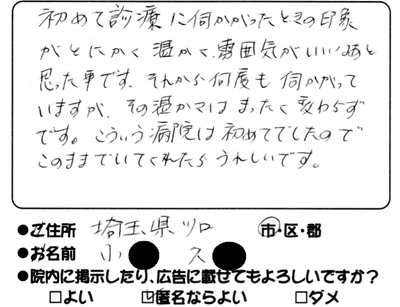 初めて診療に伺かがったときの印象
がとにかく温かく、雰囲気がいいなあと
思った事です。それから何度も伺かがって
いますが、その温かさはまったく変わらず
です。こういう病院は初めてでしたので
このままでいてくれたらうれしいです。
●ご住所 埼玉県 市・区・郡
●お名前 小 久
●院内に掲示したり、広告に載せてもよろしいですか?
□よい ☑匿名ならよい □ダメ